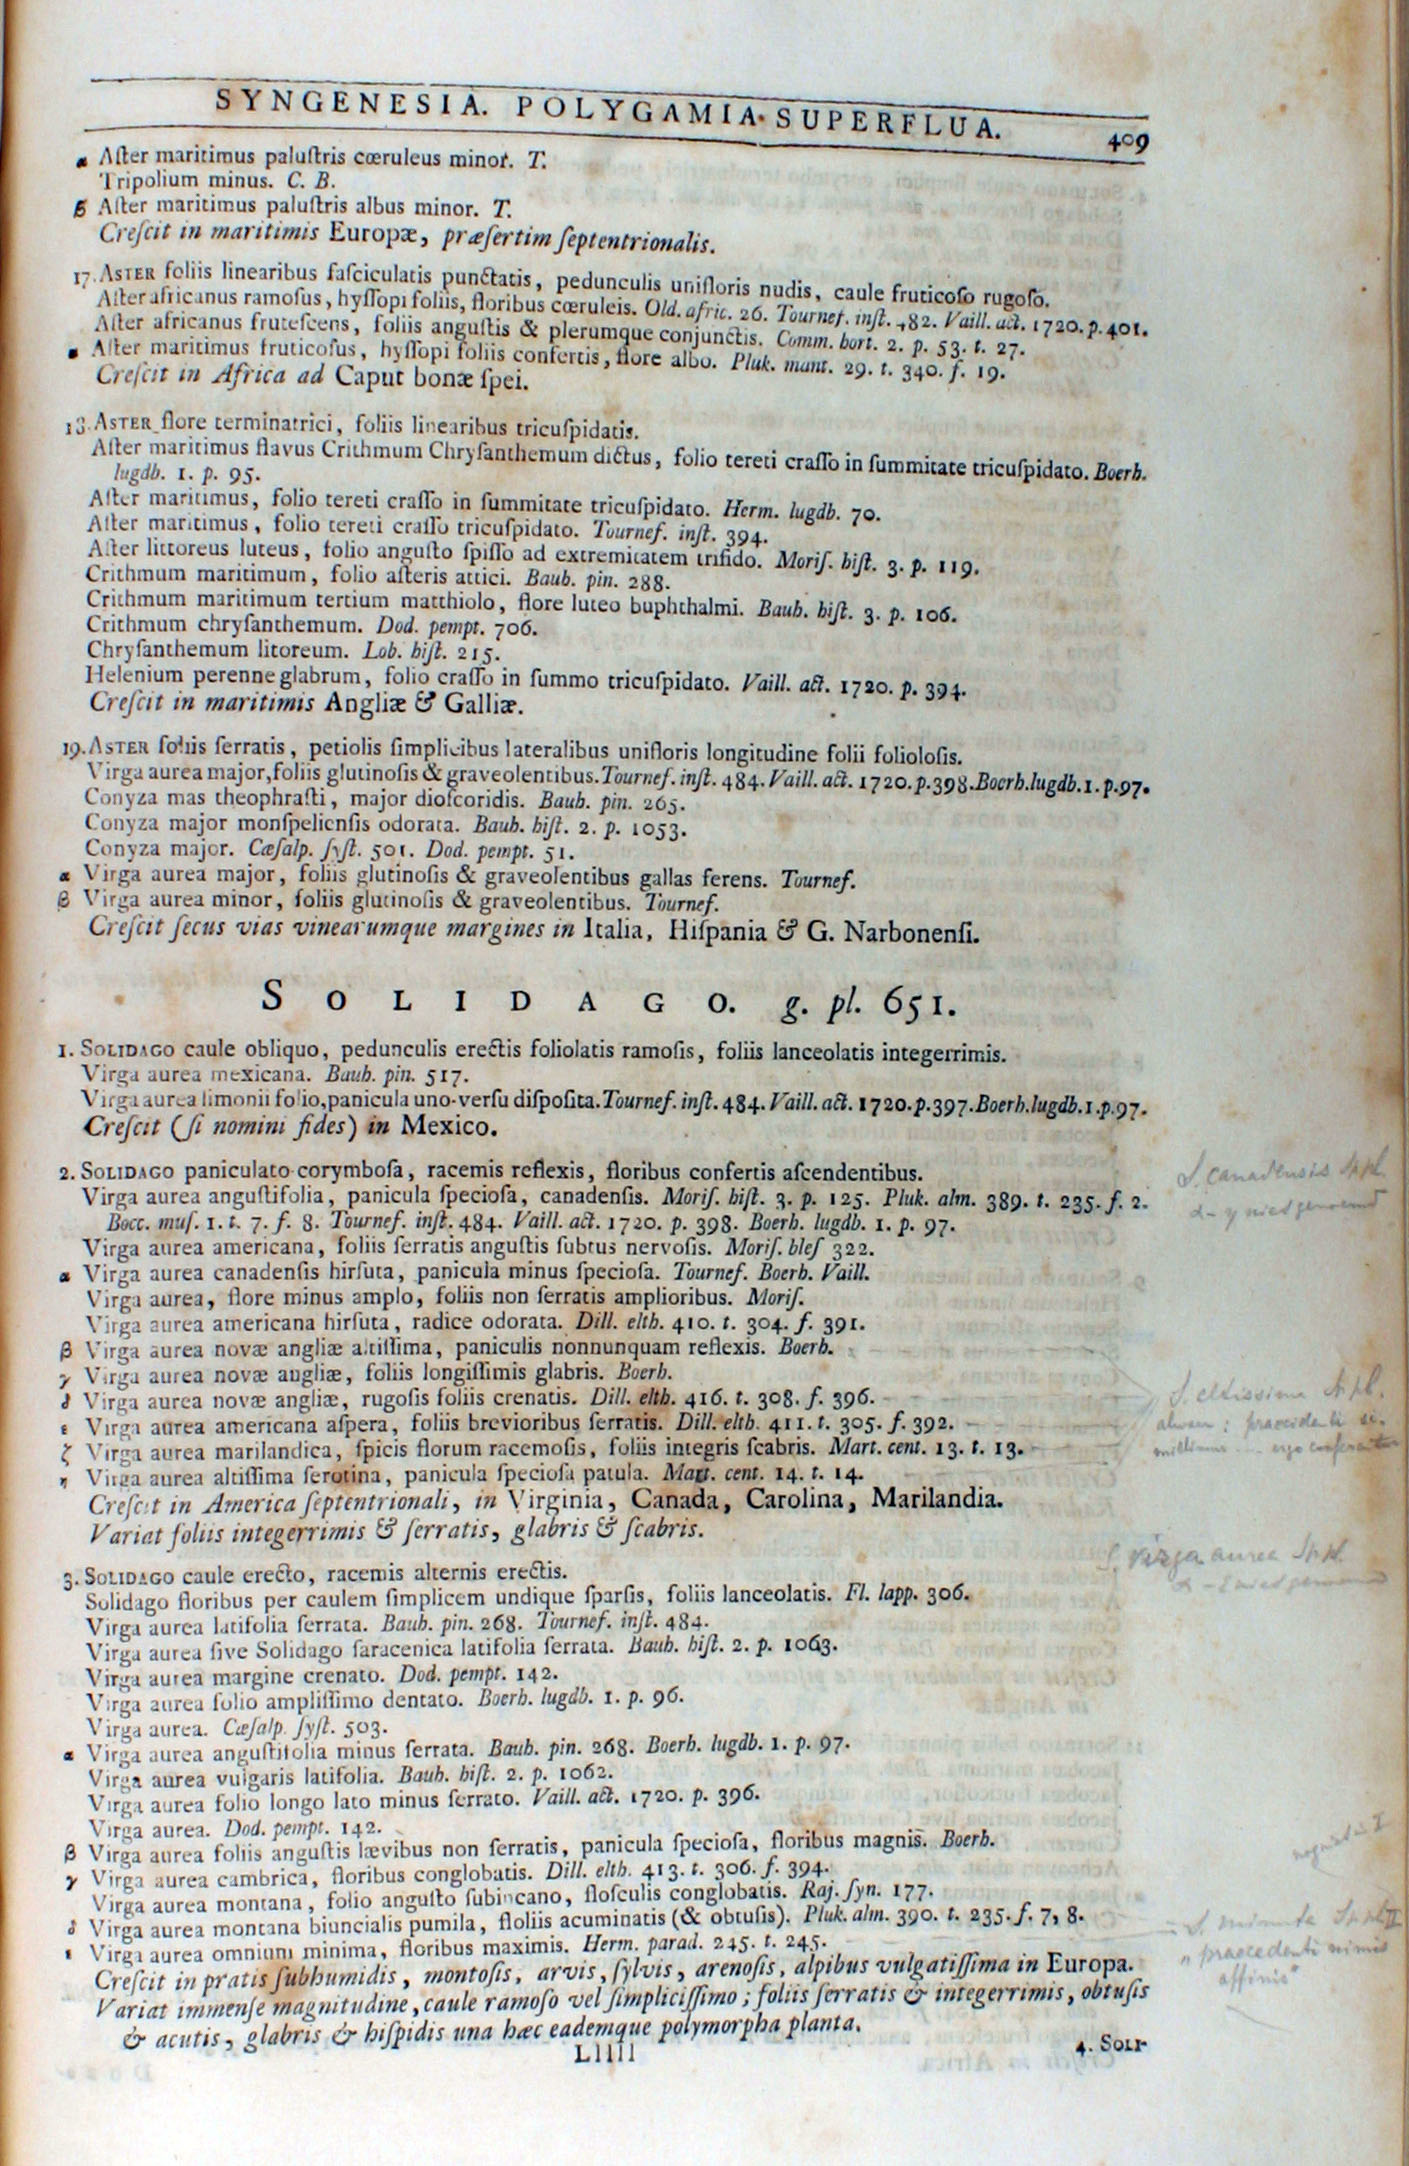 SYNGENESIA. POLYGAMIA SUPERFLUA. 409
α Aſter maritimus paluſtris cœruleus minor. T.
Tripolium minus. C. B.
β Aſter maritimus paluſtris albus minor. T.
Creſcit in maritimis Europæ, præſertim ſeptentrionalis.
17. ASTER foliis linearibus faſciculatis punctatis, pedunculis unifloris nudis, caule fruticoſo rugoſo.
Aſter africanus ramoſus, hyſſopi foliis, floribus cœruleis. Old. afric. 26. Tournef. inſt. 482. Vaill. act. 1720. p. 401.
Aſter africanus fruteſcens, foliis anguſtis & plerumque conjunctis. Comm. hort. 2. p. 53. t. 27.
α Aſter maritimus fruticoſus, hyſſopi foliis confertis, flore albo. Pluk. mant. 29. t. 340. f. 19.
Creſcit in Africa ad Caput bonæ ſpei.
18. ASTER flore terminatrici, foliis linearibus tricuſpidatis.
Aſter maritimus flavus Crithmum Chryſanthemum dictus, folio tereti craſſo in ſummitate tricuſpidato. Boerh.
lugdb. 1. p. 95.
Aſter maritimus, folio tereti craſſo in ſummitate tricuſpidato. Herm. lugdb. 70.
Aſter maritimus, folio tereti craſſo tricuſpidato. Tournef. inſt. 394.
Aſter littoreus luteus, folio anguſto ſpiſſo ad extremitatem trifido. Moriſ. hiſt. 3. p. 119.
Crithmum maritimum, folio aſteris attici. Bauh. pin. 288.
Crithmum maritimum tertium matthiolo, flore luteo buphthalmi. Bauh. hiſt. 3. p. 106.
Crithmum chryſanthemum. Dod. pempt. 706.
Chryſanthemum litoreum. Lob. hiſt. 215.
Helenium perenne glabrum, folio craſſo in ſummo tricuſpidato. Vaill. act. 1720. p. 394.
Creſcit in maritimis Angliæ & Galliæ.
19. ASTER foliis ſerratis, petiolis ſimplicibus lateralibus unifloris longitudine folii folioloſis.
Virga aurea major, foliis glutinoſis & graveolentibus. Tournef. inſt. 484. Vaill. act. 1720. p. 398. Boerh. lugdb. 1. p. 97.
Conyza mas theophraſti, major dioſcoridis. Bauh. pin. 265.
Conyza major monſpelienſis odorata. Bauh. hiſt. 2. p. 1053.
Conyza major. Cæſalp. ſyſt. 501. Dod. pempt. 51.
α Virga aurea major, foliis glutinoſis & graveolentibus gallas ferens. Tournef.
β Virga aurea minor, foliis glutinoſis & graveolentibus. Tournef.
Creſcit ſecus vias vinearumque margines in Italia, Hiſpania & G. Narbonenſi.
SOLIDAGO. g. pl. 651.
1. SOLIDAGO caule obliquo, pedunculis erectis foliolatis ramoſis, foliis lanceolatis integerrimis.
Virga aurea mexicana. Bauh. pin. 517.
Virga aurea limonii folio, panicula uno-verſu diſpoſita. Tournef. inſt. 484. Vaill. act. 1720. p. 397. Boerh. lugdb. 1. p. 97.
Creſcit (ſi nomini fides) in Mexico.
2. SOLIDAGO paniculato-corymboſa, racemis reflexis, floribus confertis aſcendentibus.
Virga aurea anguſtifolia, panicula ſpecioſa, canadenſis. Moriſ. hiſt. 3. p. 125. Pluk. alm. 389. t. 235. f. 2.
Bocc. muſ. 1. t. 7. f. 8. Tournef. inſt. 484. Vaill. act. 1720. p. 398. Boerh. lugdb. 1. p. 97.
Virga aurea americana, foliis ſerratis anguſtis ſubtus nervoſis. Moriſ. bleſ 322.
α Virga aurea canadenſis hirſuta, panicula minus ſpecioſa. Tournef. Boerh. Vaill.
Virga aurea, flore minus amplo, foliis non ſerratis amplioribus. Moriſ.
Virga aurea americana hirſuta, radice odorata. Dill. elth. 410. t. 304. f. 391.
β Virga aurea novæ angliæ altiſſima, paniculis nonnunquam reflexis. Boerh.
γ Virga aurea novæ augliæ, foliis longiſſimis glabris. Boerh.
δ Virga aurea novæ angliæ, rugoſis foliis crenatis. Dill. elth. 416. t. 308. f. 396.
ε Virga aurea americana aſpera, foliis brevioribus ſerratis. Dill. elth. 411. t. 305. f. 392.
ζ Virga aurea marilandica, ſpicis florum racemoſis, foliis integris ſcabris. Mart. cent. 13. t. 13.
η Virga aurea altiſſima ſerotina, panicula ſpecioſa patula. Mart. cent. 14. t. 14.
Creſcit in America ſeptentrionali, in Virginia, Canada, Carolina, Marilandia.
Variat foliis integerrimis & ſerratis, glabris & ſcabris.
3. SOLIDAGO caule erecto, racemis alternis erectis.
Solidago floribus per caulem ſimplicem undique ſparſis, foliis lanceolatis. Fl. lapp. 306.
Virga aurea latifolia ſerrata. Bauh. pin. 268. Tournef. inſt. 484.
Virga aurea ſive Solidago ſaracenica latifolia ſerrata. Bauh. hiſt. 2. p. 1063.
Virga aurea margine crenato. Dod. pempt. 142.
Virga aurea folio ampliſſimo dentato. Boerh. lugdb. 1. p. 96.
Virga aurea. Cæſalp. ſyſt. 503.
α Virga aurea anguſtifolia minus ſerrata. Bauh. pin. 268. Boerh. lugdb. 1. p. 97.
Virga aurea vulgaris latifolia. Bauh. hiſt. 2. p. 1062.
Virga aurea folio longo lato minus ſerrato. Vaill. act. 1720. p. 396.
Virga aurea. Dod. pempt. 142.
β Virga aurea foliis anguſtis lævibus non ſerratis, panicula ſpecioſa, floribus magnis. Boerh.
γ Virga aurea cambrica, floribus conglobatis. Dill. elth. 413. t. 306. f. 394.
Virga aurea montana, folio anguſto ſubincano, floſculis conglobatis. Raj. ſyn. 177.
δ Virga aurea montana biuncialis pumila, floliis acuminatis (& obtuſis). Pluk. alm. 390. t. 235. f. 7, 8.
ε Virga aurea omnium minima, floribus maximis. Herm. parad. 245. t. 245.
Creſcit in pratis ſubhumidis, montoſis, arvis, ſylvis, arenoſis, alpibus vulgatiſſima in Europa.
Variat immenſe magnitudine, caule ramoſo vel ſimpliciſſimo; foliis ſerratis & integerrimis, obtuſis
& acutis, glabris & hiſpidis una hæc eademque polymorpha planta.
Lllll 4. SOLI-
S. canadensis Sp. pl.
S. altissima Sp. pl.
S. virga aurea Sp. pl.
S. minuta Sp. pl. II
"praecedenti nimis
affinis"